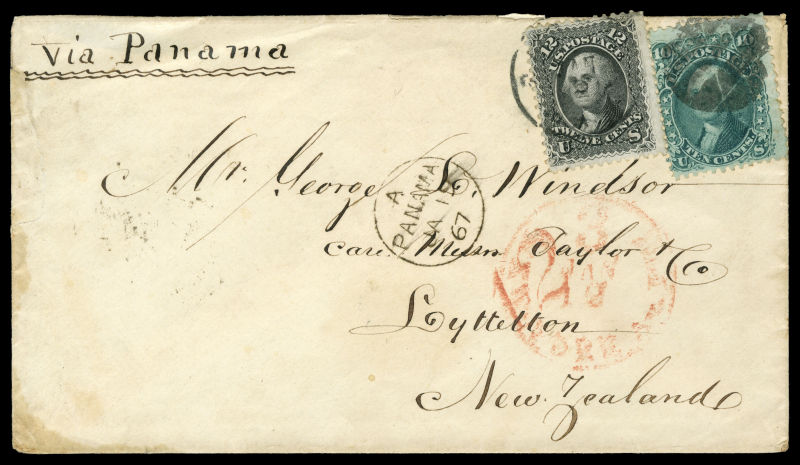 Via Panama
12 12
U.S. POSTAGE
TWELVE CENTS
U S
10 10
U.S. POSTAGE
TEN CENTS
U S
Mr. George L. Windsor
A
PANAMA
JA 15
67
care Messrs Taylor & Co
Lyttelton
New Zealand